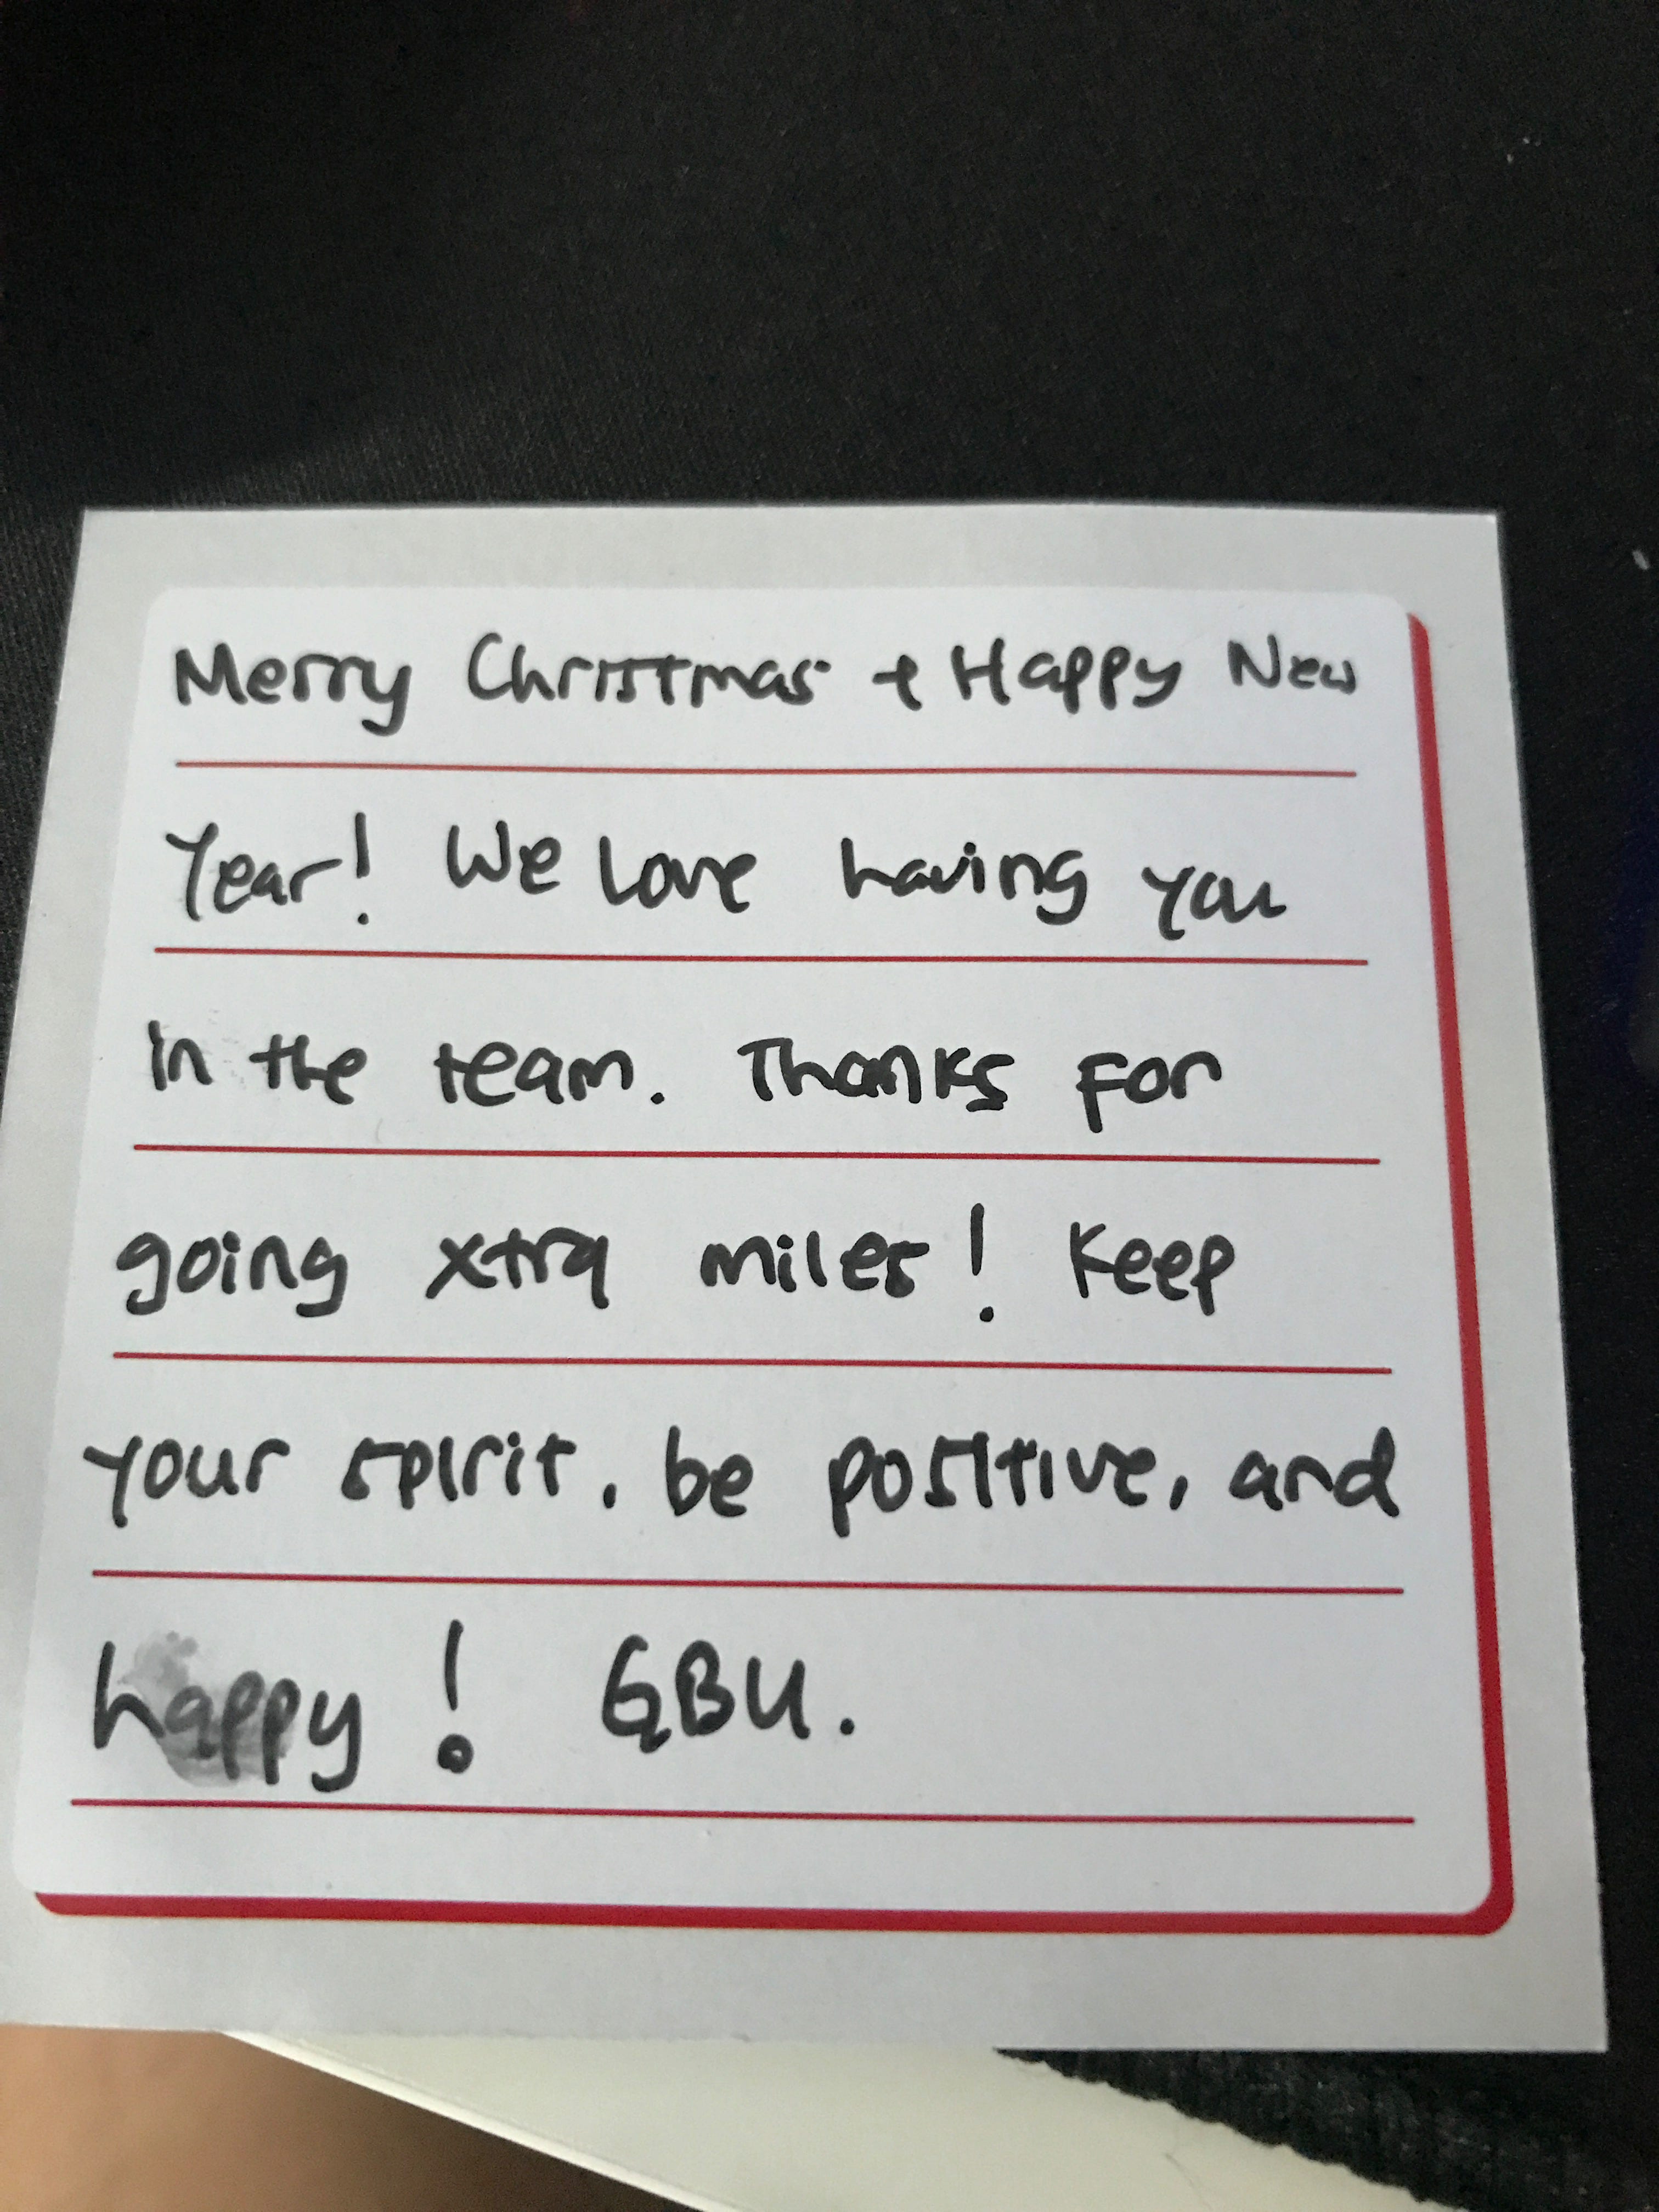 Merry Christmas + Happy New
Year! We Love having you
in the team. Thanks for
going xtra miles! Keep
your spirit, be positive, and
happy! GBU.